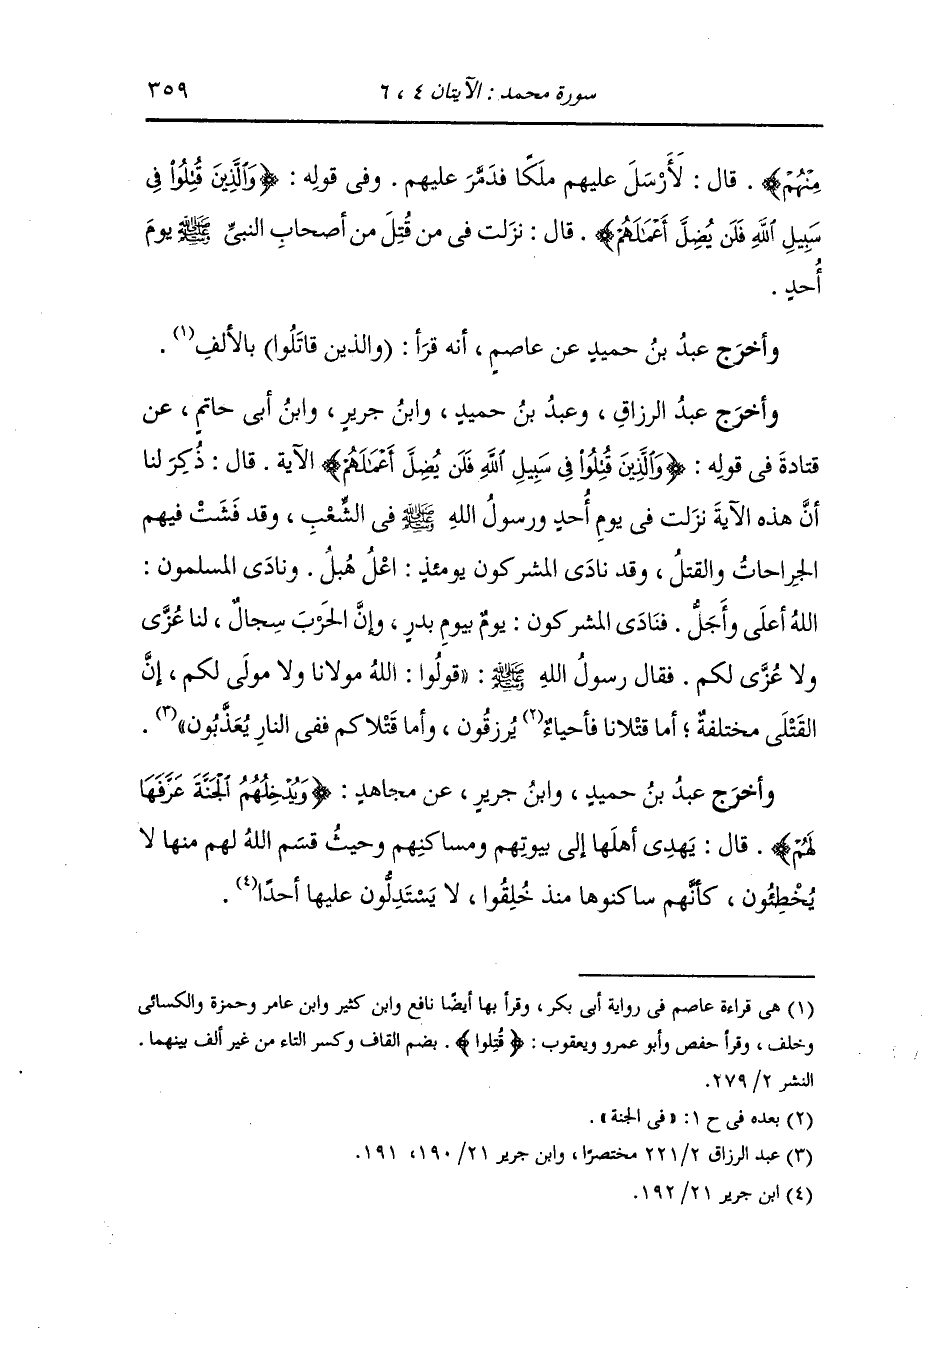 سورة محمد : الآيتان ٤ ، ٦ ٣٥٩
مِنْهُمْ﴾ . قال : لَأَرْسَلَ عليهم ملَكًا فدَمَّرَ عليهم . وفى قولِه : ﴿وَٱلَّذِينَ قُتِلُوا۟ فِى
سَبِيلِ ٱللَّهِ فَلَن يُضِلَّ أَعْمَـٰلَهُمْ﴾ . قال : نزَلت فى من قُتِلَ من أصحابِ النبىِّ ﷺ يومَ
أُحدٍ .
وأخرَج عبدُ بنُ حميدٍ عن عاصمٍ ، أنه قرَأ : (والذين قاتَلُوا) بالألفِ(١) .
وأخرَج عبدُ الرزاقِ ، وعبدُ بنُ حميدٍ ، وابنُ جريرٍ ، وابنُ أبى حاتمٍ ، عن
قتادةَ فى قولِه : ﴿وَٱلَّذِينَ قُتِلُوا۟ فِى سَبِيلِ ٱللَّهِ فَلَن يُضِلَّ أَعْمَـٰلَهُمْ﴾ الآية . قال : ذُكِرَ لنا
أنَّ هذه الآيةَ نزَلت فى يومِ أُحدٍ ورسولُ اللهِ ﷺ فى الشِّعْبِ ، وقد فَشَتْ فيهم
الجِراحاتُ والقتلُ ، وقد نادَى المشركون يومئذٍ : اعْلُ هُبلُ . ونادَى المسلمون :
اللهُ أعلَى وأَجَلُّ . فنَادَى المشركون : يومٌ بيومِ بدرٍ ، وإنَّ الحَرْبَ سِجالٌ ، لنا عُزَّى
ولا عُزَّى لكم . فقال رسولُ اللهِ ﷺ : «قولُوا : اللهُ مولانا ولا مولَى لكم ، إنَّ
القَتْلَى مختلفةٌ ؛ أما قتْلانا فأحياءٌ(٢) يُرزقُون ، وأما قَتْلاكم ففى النارِ يُعَذَّبُون»(٣) .
وأخرَج عبدُ بنُ حميدٍ ، وابنُ جريرٍ ، عن مجاهدٍ : ﴿وَيُدْخِلُهُمُ ٱلْجَنَّةَ عَرَّفَهَا
لَهُمْ﴾ . قال : يَهدِى أهلَها إلى بيوتِهم ومساكنِهم وحيثُ قسَم اللهُ لهم منها لا
يُخْطِئُون ، كأنَّهم ساكنوها منذ خُلِقُوا ، لا يَسْتَدِلُّون عليها أحدًا(٤) .
(١) هى قراءة عاصم فى رواية أبى بكر ، وقرأ بها أيضًا نافع وابن كثير وابن عامر وحمزة والكسائى
وخلف ، وقرأ حفص وأبو عمرو ويعقوب : ﴿ قُتِلوا ﴾ . بضم القاف وكسر التاء من غير ألف بينهما .
النشر ٢/ ٢٧٩.
(٢) بعده فى ح ١: «فى الجنة» .
(٣) عبد الرزاق ٢/ ٢٢١ مختصرًا ، وابن جرير ٢١/ ١٩٠، ١٩١.
(٤) ابن جرير ٢١/ ١٩٢.